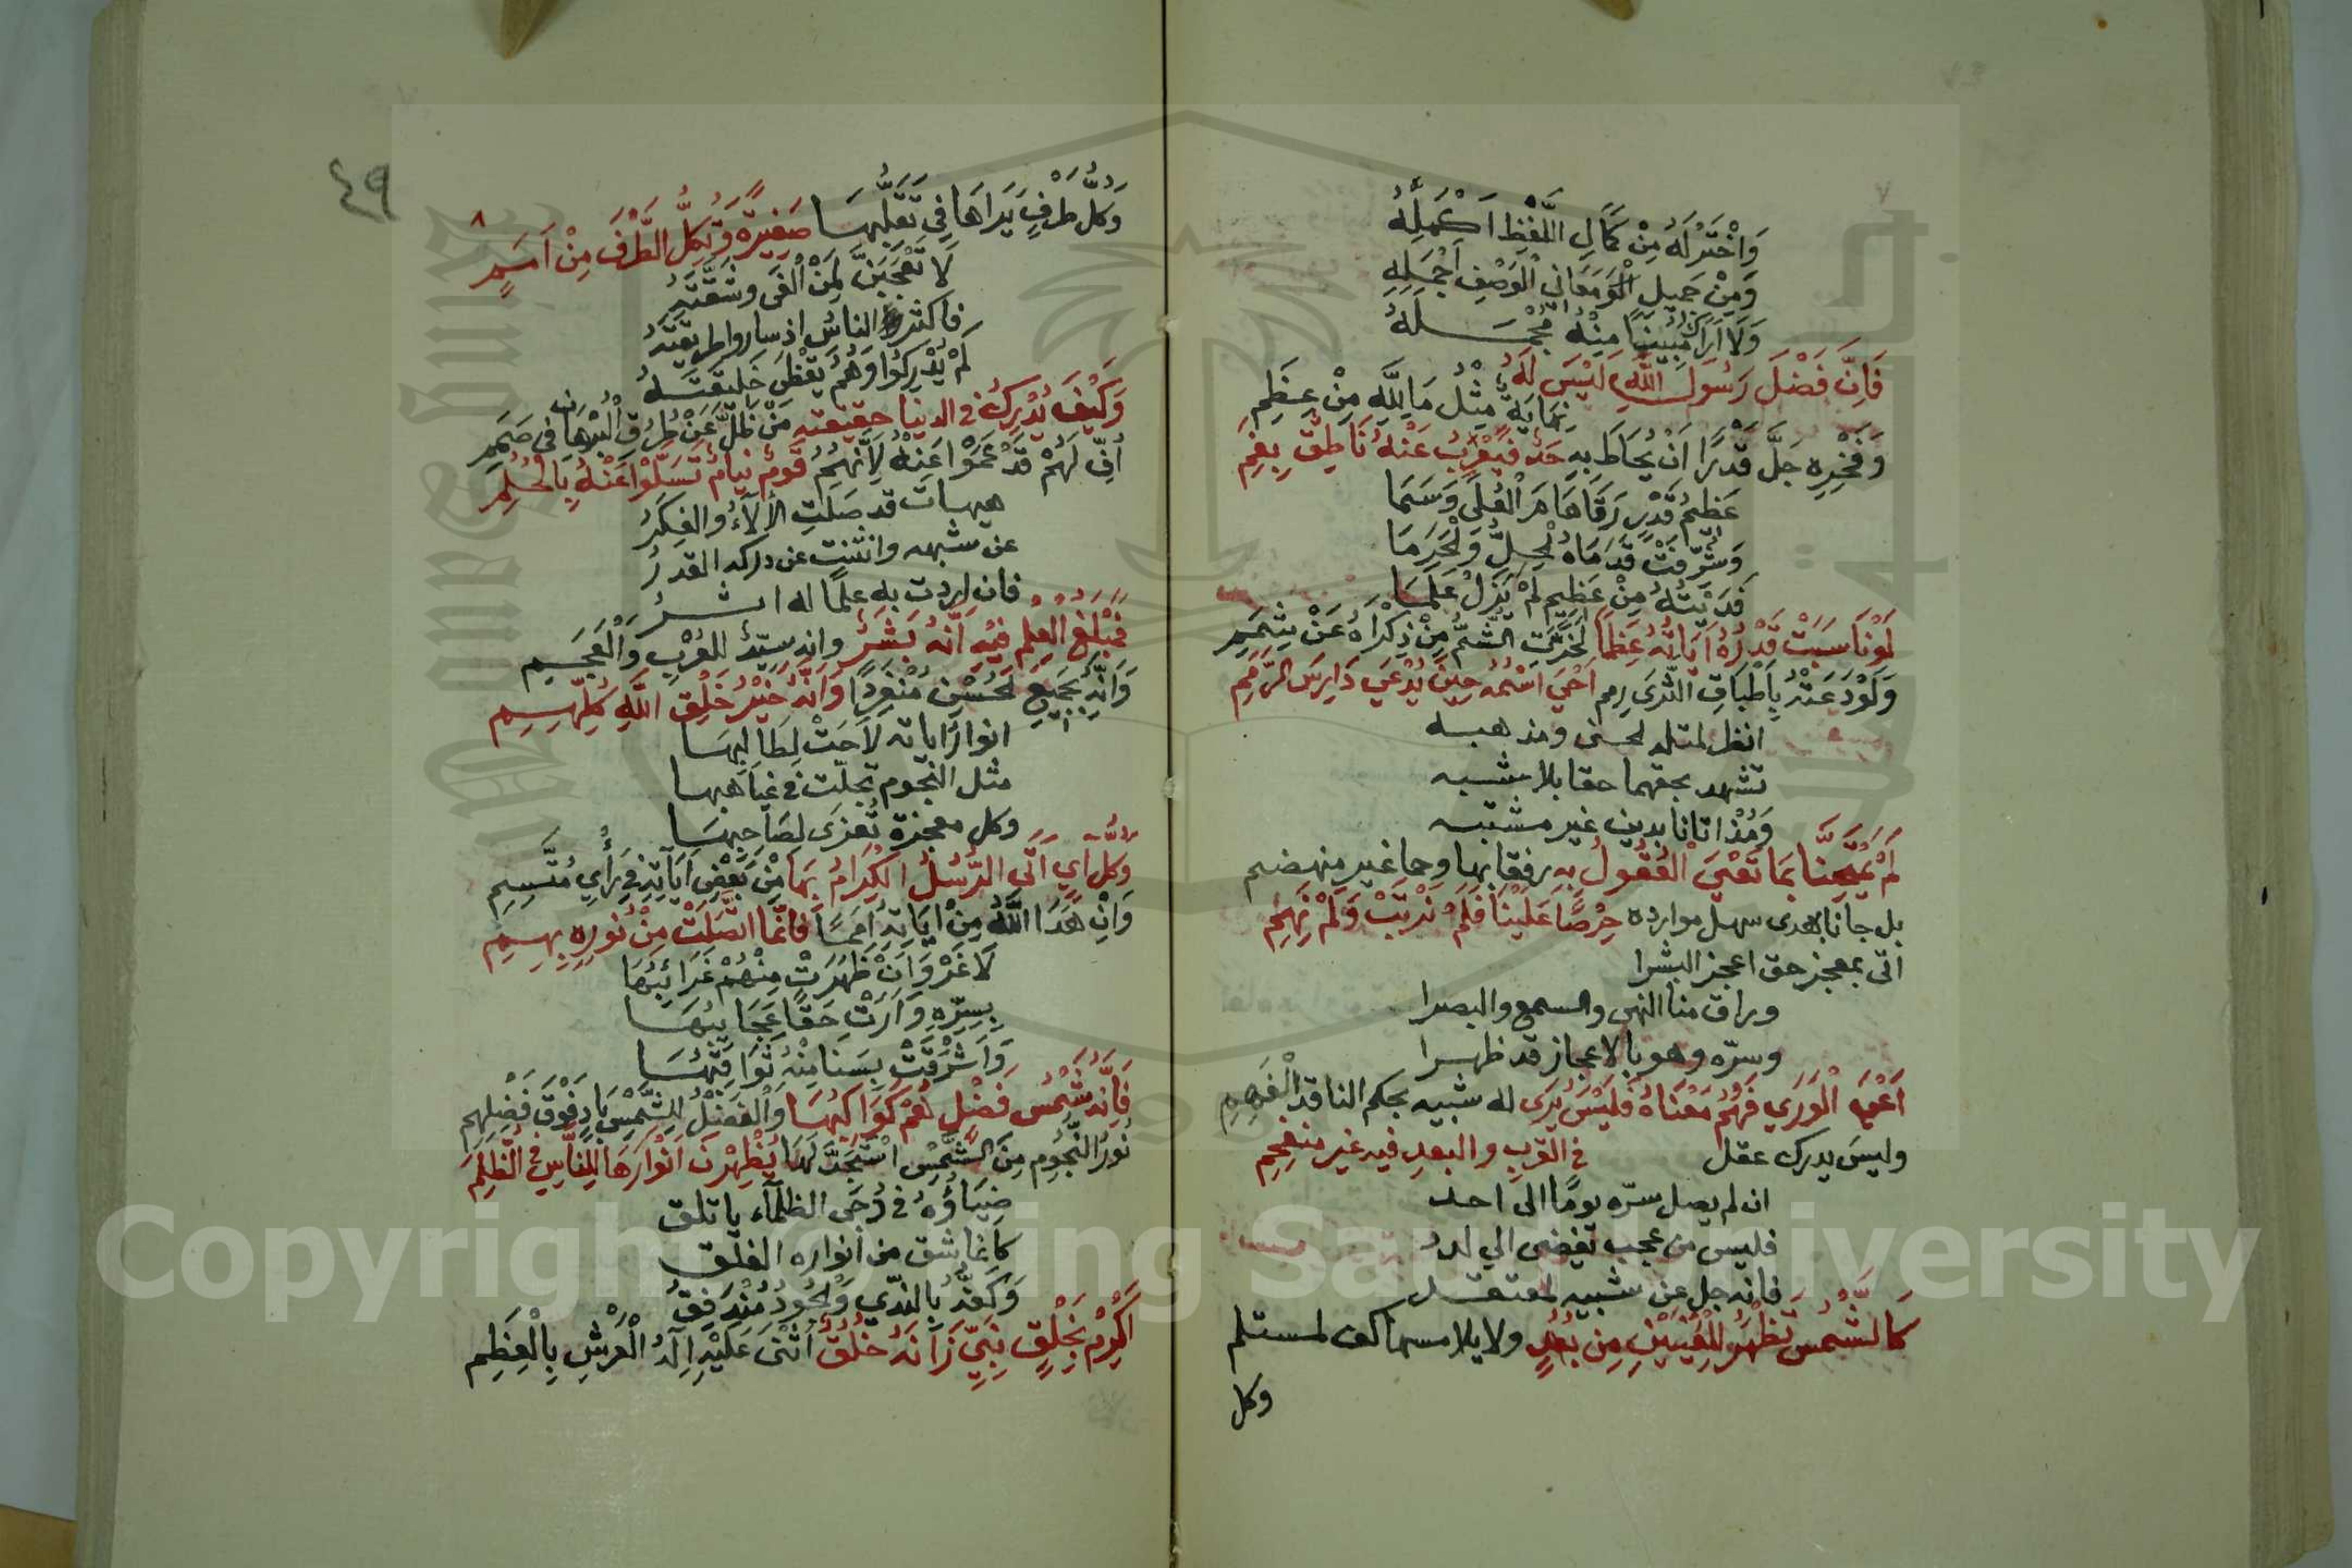 وَاخْتَرْ لَهُ مِنْ كَمَالِ اللَّفْظِ اَكْمَلِهُ
وَمِنْ جَمِيلِ الْوَصْفِ اَجْمَلِهِ
وَلَا اَرَاكَ مُبِينًا مِنْهُ مُجْمَلَهُ
فَاِنَّ فَضْلَ رَسُولِ اللَّهِ لَيْسَ لَهُ نِهَايَةٌ مِثْلُ مَا لِلَّهِ مِنْ عِظَمِ
وَفَخْرِهِ جَلَّ قَدْرًا اَنْ يُحَاطَ بِهِ حَدٌّ فَيُعْرِبُ عَنْهُ نَاطِقٌ بِفَمِ
عَظِيمُ قَدْرٍ رَقَا هَامَ الْعُلَى وَسَمَا
وَشُرِّفَتْ قَدَمَاهُ الْحِلَّ وَالْحَرَمَا
فَدَيْتُهُ مِنْ عَظِيمٍ لَمْ يَزَلْ عَلَمَا
لَوْ نَاسَبَتْ قَدْرَهُ اَيَاتُهُ عِظَمًا لَخَرَّتِ الشُّمُّ مِنْ ذِكْرَاهُ عَنْ شِمَمِ
وَلَوْ دَعَتْهُ بِاَطْبَاقِ الثَّرَى رمم اَحْيَ اسْمُهُ حِينَ يُدْعَى دَارِسَ الرِّمَمِ
انظر لملته الحسنى ومذهبه
تشهد بحقهما حقا بلا شبه
وَمُذْ اتانا بدين غير مشتبه
لَمْ يَمْتَحِنَّا بِمَا تَعْيَ الْعُقُولُ بِهِ رفقا بها وحما غير منهضم
بل جانا بهدى سهل موارده حِرْصًا عَلَيْنَا فَلَمْ نَرْتَبْ وَلَمْ نَهِمِ
اتى بمعجز حق اعجز البشرا
وراق منا النهى والسمع والبصرا
وسرّه وهو بالاعجاز قد ظهرا
اَعْيَى الْوَرَى فَهْمُ مَعْنَاهُ فَلَيْسَ يُرَى له شبيه بحكم الناقد الْفَهِمِ
وليسَ يدرك عقل في القُرْبِ والبعدِ فيه غير منفحِمِ
ان لم يصل سرّه يومًا الى احد
فليس من عجب تفضى الي لدد
فانه جل عن شبيه لمعتقد
كَالشَّمْسِ تَظْهَرُ لِلْعَيْنَيْنِ مِنْ بُعُدٍ ولا يلامسها كف لمستلم
وكل
٤٩
٨
وَكُلُّ طَرْفٍ يَرَاهَا فِي تَقَلُّبِهَا صَغِيرَةً وَتُكِلُّ الطَّرْفَ مِنْ اَمَمِ
لَا تَعْجَبَنَّ لِمَنْ اَلْغَى وشقته
فاكثر الناس اذ ساروا طريقته
لَمْ يُدْرِكُوا وَهُمُ يَقْظَى خَلِيقَتَهُ
وَكَيْفَ يُدْرِكُ في الدنيا حقيقته مَنْ ظَلَّ عَنْ طُرُقِ الْبُرْهَانِ في صَمَمِ
اُفٍّ لَهُمْ قَدْ عَمَوْا عَنْهُ لِاَنَّهُمُ قَوْمٌ نِيَامٌ تَسَلَّوْا عَنْهُ بِالْحُلُمِ
هيهات قد ضلت الآلاءُ والفكَرُ
عن شبهه وانثنت عن دركه القدرُ
فان اردت به علمًا له اشرُ
فَمَبْلَغُ الْعِلْمِ فِيهِ اَنَّهُ بَشَرٌ وانه سيّدُ العُرْبِ وَالْعَجَمِ
وَاَنَّهُ بِجَمِيعِ الْحُسْنِ مُنْفَرِدًا وَاَنَّهُ خَيْرُ خَلْقِ اللَّهِ كُلِّهِمِ
انوار اياته لَاحَتْ لِطَالِبِهَا
مثل النجوم تجلّت في غياهبها
وكل معجزة تُعْزَى لِصَاحِبِهَا
وَكُلُّ آيٍ اَتَى الرُّسْلُ الْكِرَامُ بِهَا مِنْ بَعْضِ آيَاتِهِ فِي رَأْيِ مُتَّسِمِ
وَاِنْ هَدَا اللَّهُ مِنْ ايَاتِهِ اُمَمًا فَاِنَّمَا اتَّصَلَتْ مِنْ نُورِهِ بِهِمِ
لَا غَرْوَ اِنْ ظَهَرَتْ مِنْهُمْ غَرَائِبُهَا
بِسِرِّهِ وَاَرَتْ حَقًّا عَجَايِبُهَا
وَاَشْرَقَتْ بِسَنَا مِنْهُ ثَوَاقِبُهَا
فَاِنَّهُ شَمْسُ فَضْلٍ هُمْ كَوَاكِبُهَا وَالْفَضْلُ لِلشَّمْسِ بَادٍ فَوْقَ فَضْلِهِمِ
نُورُ النُّجُومِ مِنَ الشَّمْسِ اسْتَجَدَّ لَهَا يُظْهِرْنَ اَنْوَارَهَا لِلنَّاسِ في الظُّلَمِ
ضِيَاؤُهُ في دُجَى الظلمآء ياتلق
كانما شق من انواره الفلق
وَكَفُّهُ بِالنَّدِي وَالْجُودِ مُنْدَفِقُ
اَكْرِمْ بِخَلْقِ نَبِيٍّ زَانَهُ خُلُقٌ اَثْنَى عَلَيْهِ اِلَهُ الْعَرْشِ بِالْعِظَمِ